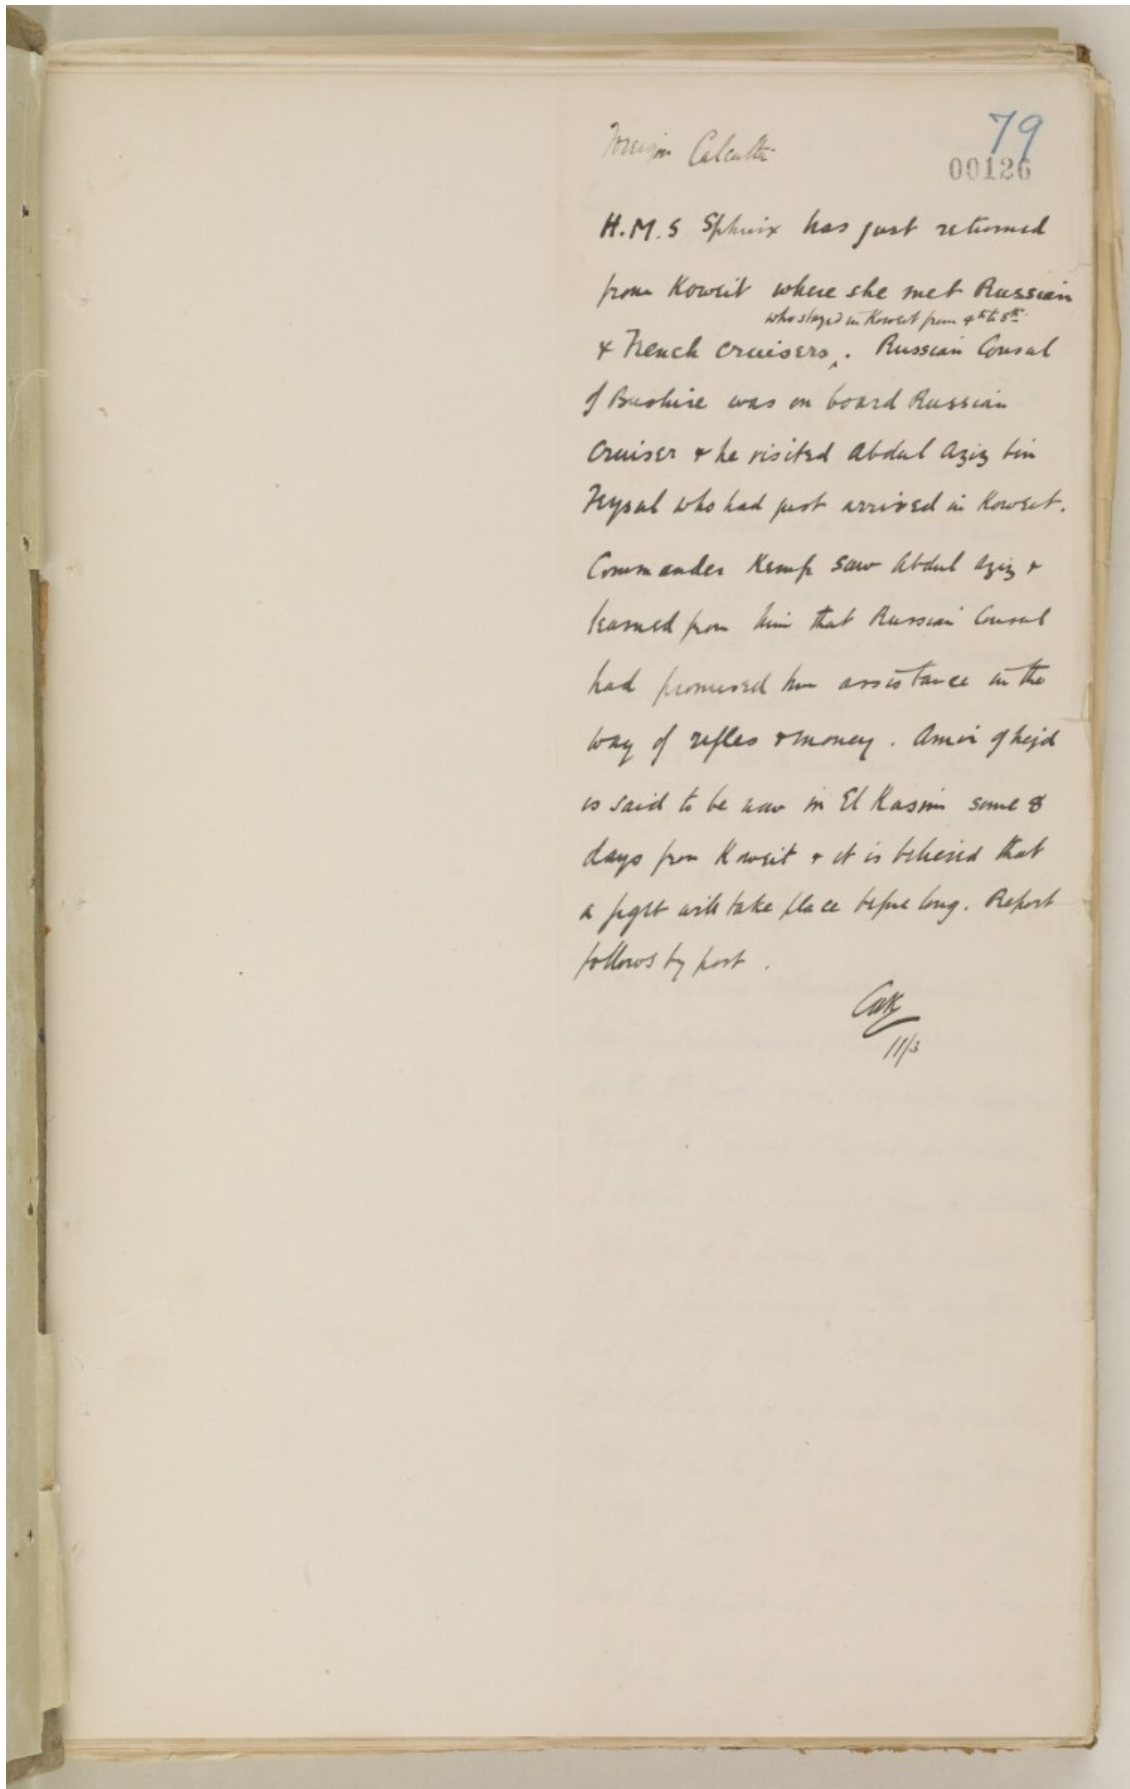 79
00126
Foreign Calcutta
H.M.S Sphinx has just returned
from Koweit where she met Russian
who stayed in Koweit from 4th to 8th.
& French cruisers. Russian Consul
of Bushire was on board Russian
Cruiser & he visited Abdul Aziz bin
Feysul who had just arrived in Koweit.
Commander Kemp saw Abdul Aziz &
learned from him that Russian Consul
had promised him assistance in the
way of rifles & money. Amir of Nejd
is said to be now in El Kasim some 8
days from Koweit & it is believed that
a fight will take place before long. Report
follows by post.
11/3